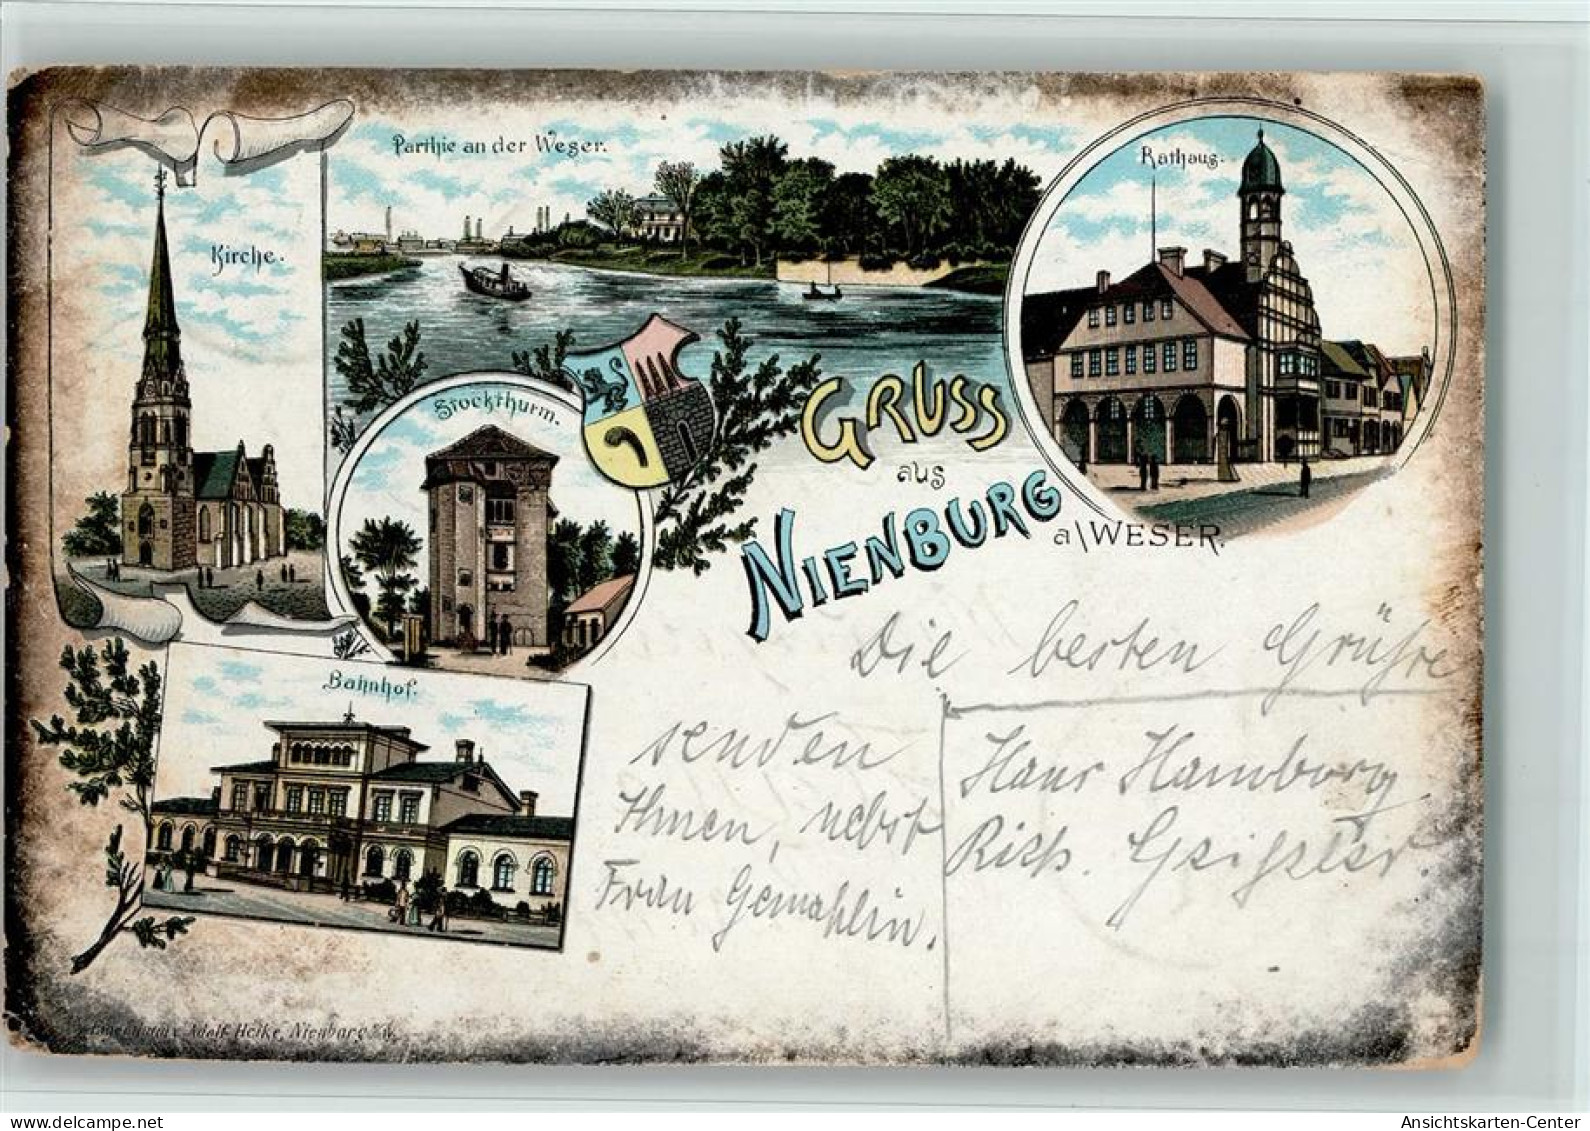 Parthie an der Weser.
Rathaus.
Kirche.
Stockthurm.
GRUSS
aus
NIENBURG
a/WESER.
Bahnhof.
Die besten Grüße
senden
Ihnen, nebst
Frau Gemahlin.
Hans Hamburg
Rich.
Adolf Heike, Nienburg a/W.
Ansichtskarten-Center
delcampe.net